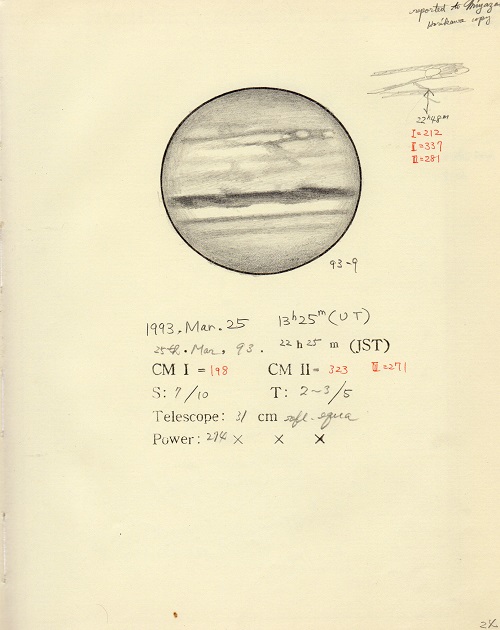 reported to Miyaza
Horikawa copy
22h48m
I=212
II=337
III=281
93-9
1993. Mar. 25 13h25m (UT)
25th. Mar, 93. 22h25m (JST)
CM I = 198 CM II = 323 III=271
S: 7/10 T: 2~3/5
Telescope: 31 cm refl. equa
Power: 274 × × ×